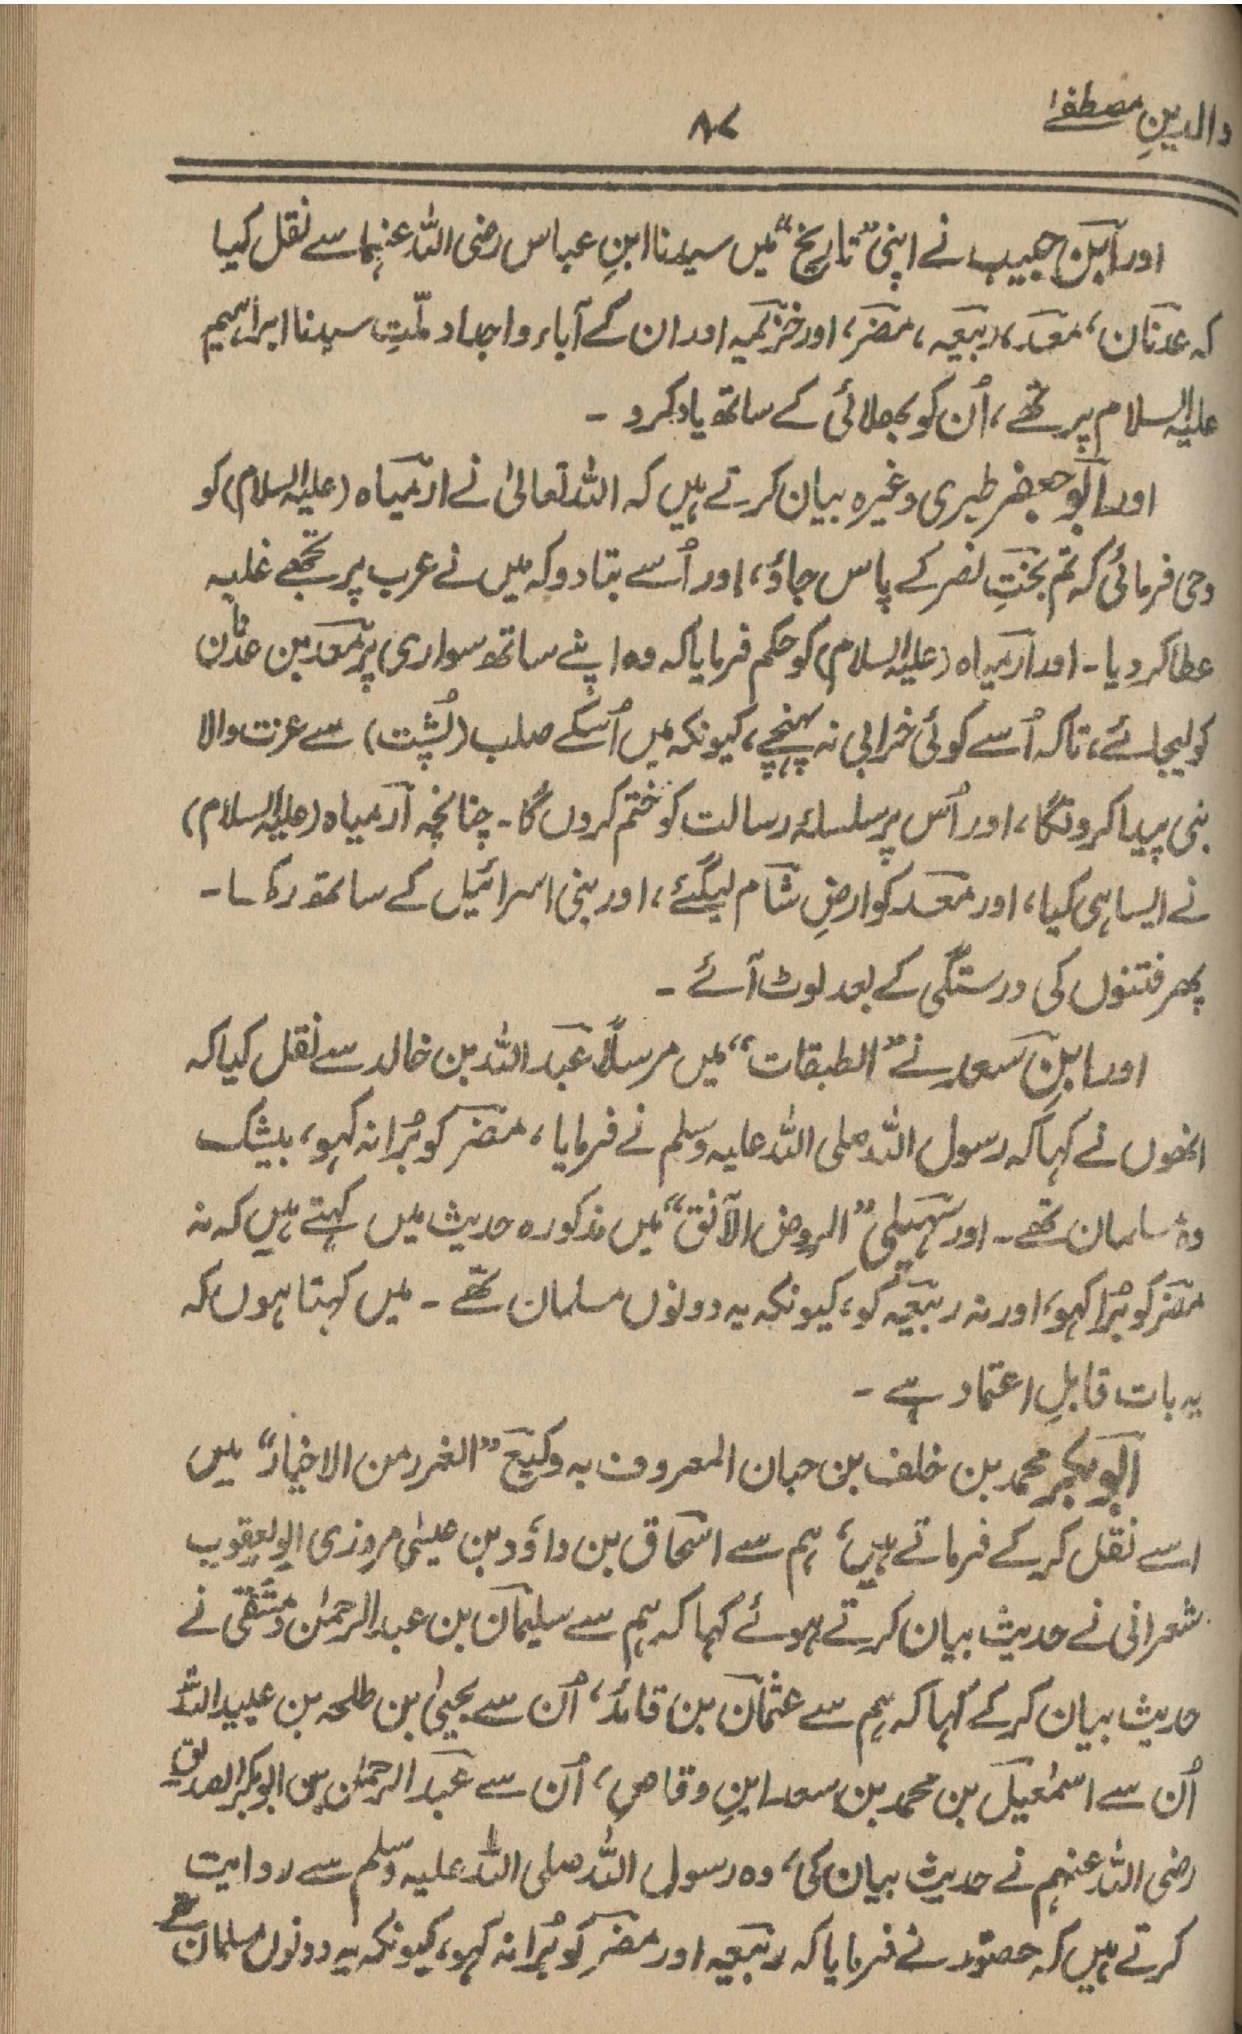 والدینِ مصطفےٰ
۸۷
اور ابن حبیب نے اپنی ”تاریخ“ میں سیدنا ابنِ عباس رضی اللہ عنہما سے نقل کیا
کہ عدنان، معد، ربیعہ، مضر، اور خزیمہ اور ان کے آباء و اجداد ملّتِ سیدنا ابراہیم
علیہ السلام پر تھے، اُن کو بھلائی کے ساتھ یاد کرو ۔
اور ابو جعفر طبری وغیرہ بیان کرتے ہیں کہ اللہ تعالیٰ نے ارمیاہ (علیہ السلام) کو
وحی فرمائی کہ تم بختِ نصر کے پاس جاؤ، اور اُسے بتادو کہ میں نے عرب پر تجھے غلبہ
عطا کر دیا ۔ اور ارمیاہ (علیہ السلام) کو حکم فرمایا کہ وہ اپنے ساتھ سواری پر معد بن عدنان
کو لیجائے، تاکہ اُسے کوئی خرابی نہ پہنچے، کیونکہ میں اُسکے صلب (پُشت) سے عزت والا
نبی پیدا کرونگا، اور اُس پر سلسلۂ رسالت کو ختم کروں گا ۔ چنانچہ ارمیاہ (علیہ السلام)
نے ایسا ہی کیا، اور معد کو ارضِ شام لیگئے، اور بنی اسرائیل کے ساتھ رکھا ۔
پھر فتنوں کی درستگی کے بعد لوٹ آئے ۔
اور ابن سعد نے ”الطبقات“ میں مرسلاً عبد اللہ بن خالد سے نقل کیا کہ
انھوں نے کہا کہ رسول اللہ صلی اللہ علیہ وسلم نے فرمایا، مضر کو بُرا نہ کہو، بیشک
وہ مسلمان تھے ۔ اور سہیلی ”الروض الآنق“ میں مذکورہ حدیث میں کہتے ہیں کہ نہ
مضر کو بُرا کہو، اور نہ ربیعہ کو، کیونکہ یہ دونوں مسلمان تھے ۔ میں کہتا ہوں کہ
یہ بات قابلِ اعتماد ہے ۔
ابو بکر محمد بن خلف بن حبان المعروف بہ وکیع ”الغرر من الاخبار“ میں
اسے نقل کر کے فرماتے ہیں، ہم سے اسحاق بن داؤد بن عیسٰی مروزی ابو یعقوب
شعرانی نے حدیث بیان کرتے ہوئے کہا کہ ہم سے سلیمان بن عبد الرحمٰن دمشقی نے
حدیث بیان کر کے کہا کہ ہم سے عثمان بن قائد، اُن سے یحییٰ بن طلحہ بن عبید اللہ
اُن سے اسمٰعیل بن محمد بن سعد ابنِ وقاص، اُن سے عبد الرحمٰن بن ابو بکر الصدیق
رضی اللہ عنہم نے حدیث بیان کی، وہ رسول اللہ صلی اللہ علیہ وسلم سے روایت
کرتے ہیں کہ حضور نے فرمایا کہ ربیعہ اور مضر کو بُرا نہ کہو، کیونکہ یہ دونوں مسلمان تھے